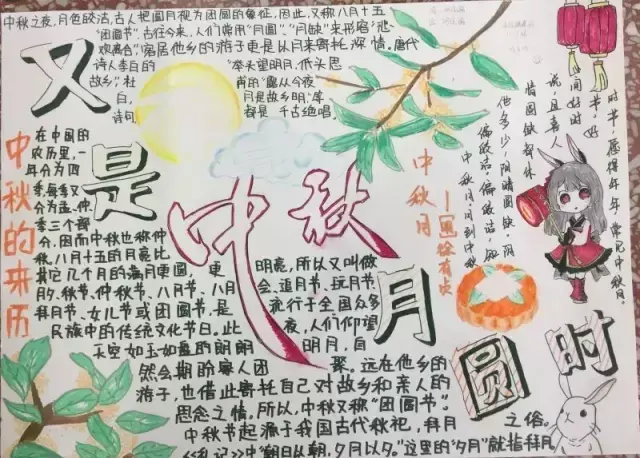 中秋之夜,月色皎洁,古人把圆月视为团圆的象征,因此,又称八月十五
"团圆节",古往今来,人们常用"月圆""月缺"来形容"悲
欢离合",客居他乡的游子更是以月来寄托深情。唐代
诗人李白的 "举头望明月,低头思
故乡",杜 甫的"露从今夜
白, 月是故乡明"等
诗句 都是千古绝唱
又是中秋月圆时
中秋的来历
在中国的
农历里,一
年分为四
季,每季又
分为孟、仲、
季三个部
分,因而中秋也称仲
秋,八月十五的月亮比
其它几个月的满月更圆,更 明亮,所以又叫做
月夕、秋节、仲秋节、八月节、八月 会、追月节、玩月节、
拜月节、女儿节或团圆节,是 流行于全国众多
民族中的传统文化节日。此 夜,人们仰望
天空如玉如盘的朗朗 明月,自
然会期盼家人团 聚。远在他乡的
游子,也借此寄托自己对故乡和亲人的
思念之情。所以,中秋又称"团圆节"。
中秋节起源于我国古代秋祀,拜月 之俗。
《礼记》中"朝日以朝,夕月以夕。"这里的"夕月"就指拜月
中秋月
—明 徐有贞
中秋月,月到中秋
偏皎洁,偏皎洁,知
他多少,阴晴圆缺,阴
晴圆缺都休
说,且喜人
间好时
节,好
时节,愿得年年 常见中秋月。